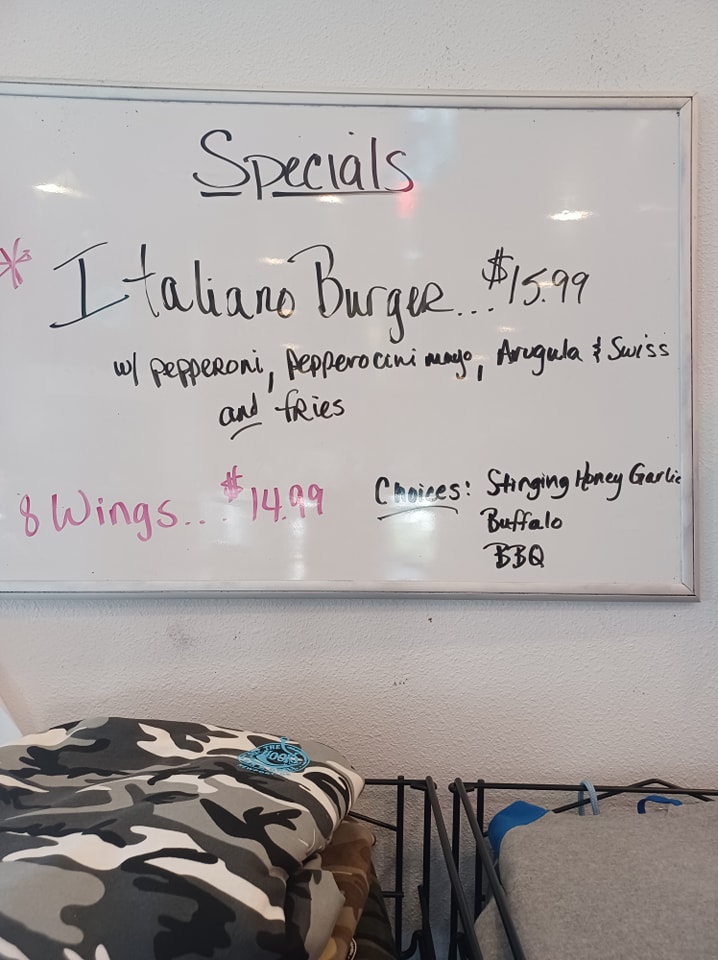 Specials
* Italiano Burger... $15.99
w/ pepperoni, pepperocini mayo, Arugula & Swiss
and fries
8 Wings... $14.99
Choices: Stinging Honey Garlic
Buffalo
BBQ